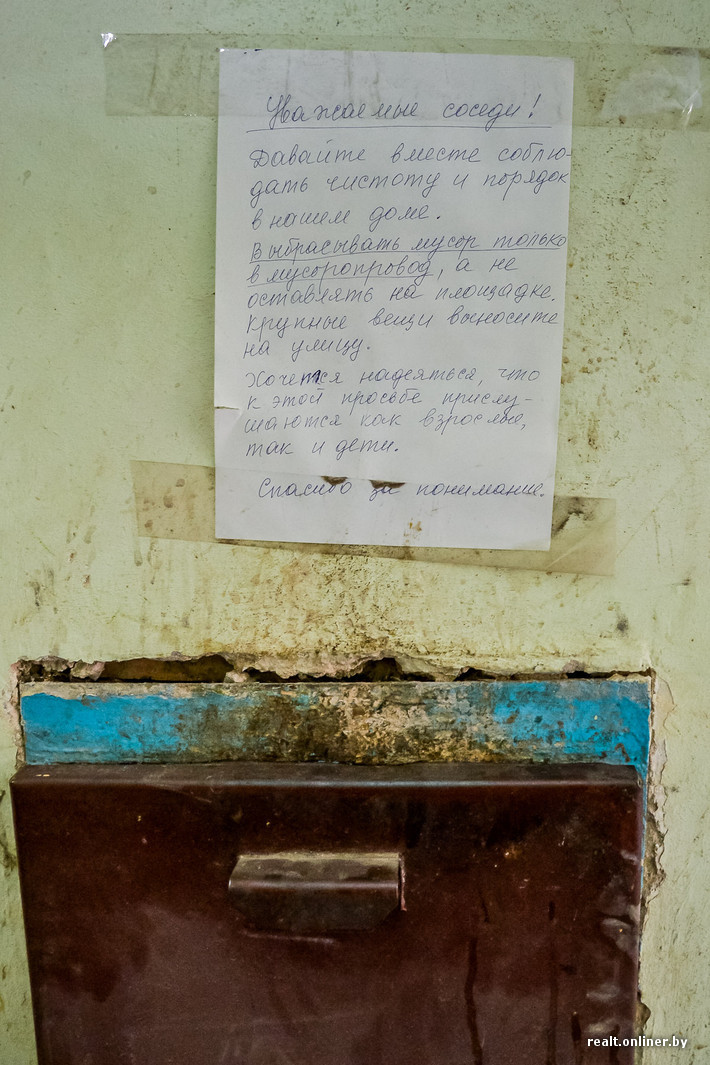 Уважаемые соседи!
Давайте вместе соблю-
дать чистоту и порядок
в нашем доме.
Выбрасывать мусор только
в мусоропровод, а не
оставлять на площадке.
Крупные вещи выносите
на улицу.
Хочется надеяться, что
к этой просьбе прислу-
шаются как взрослые,
так и дети.
Спасибо за понимание.
realt.onliner.by